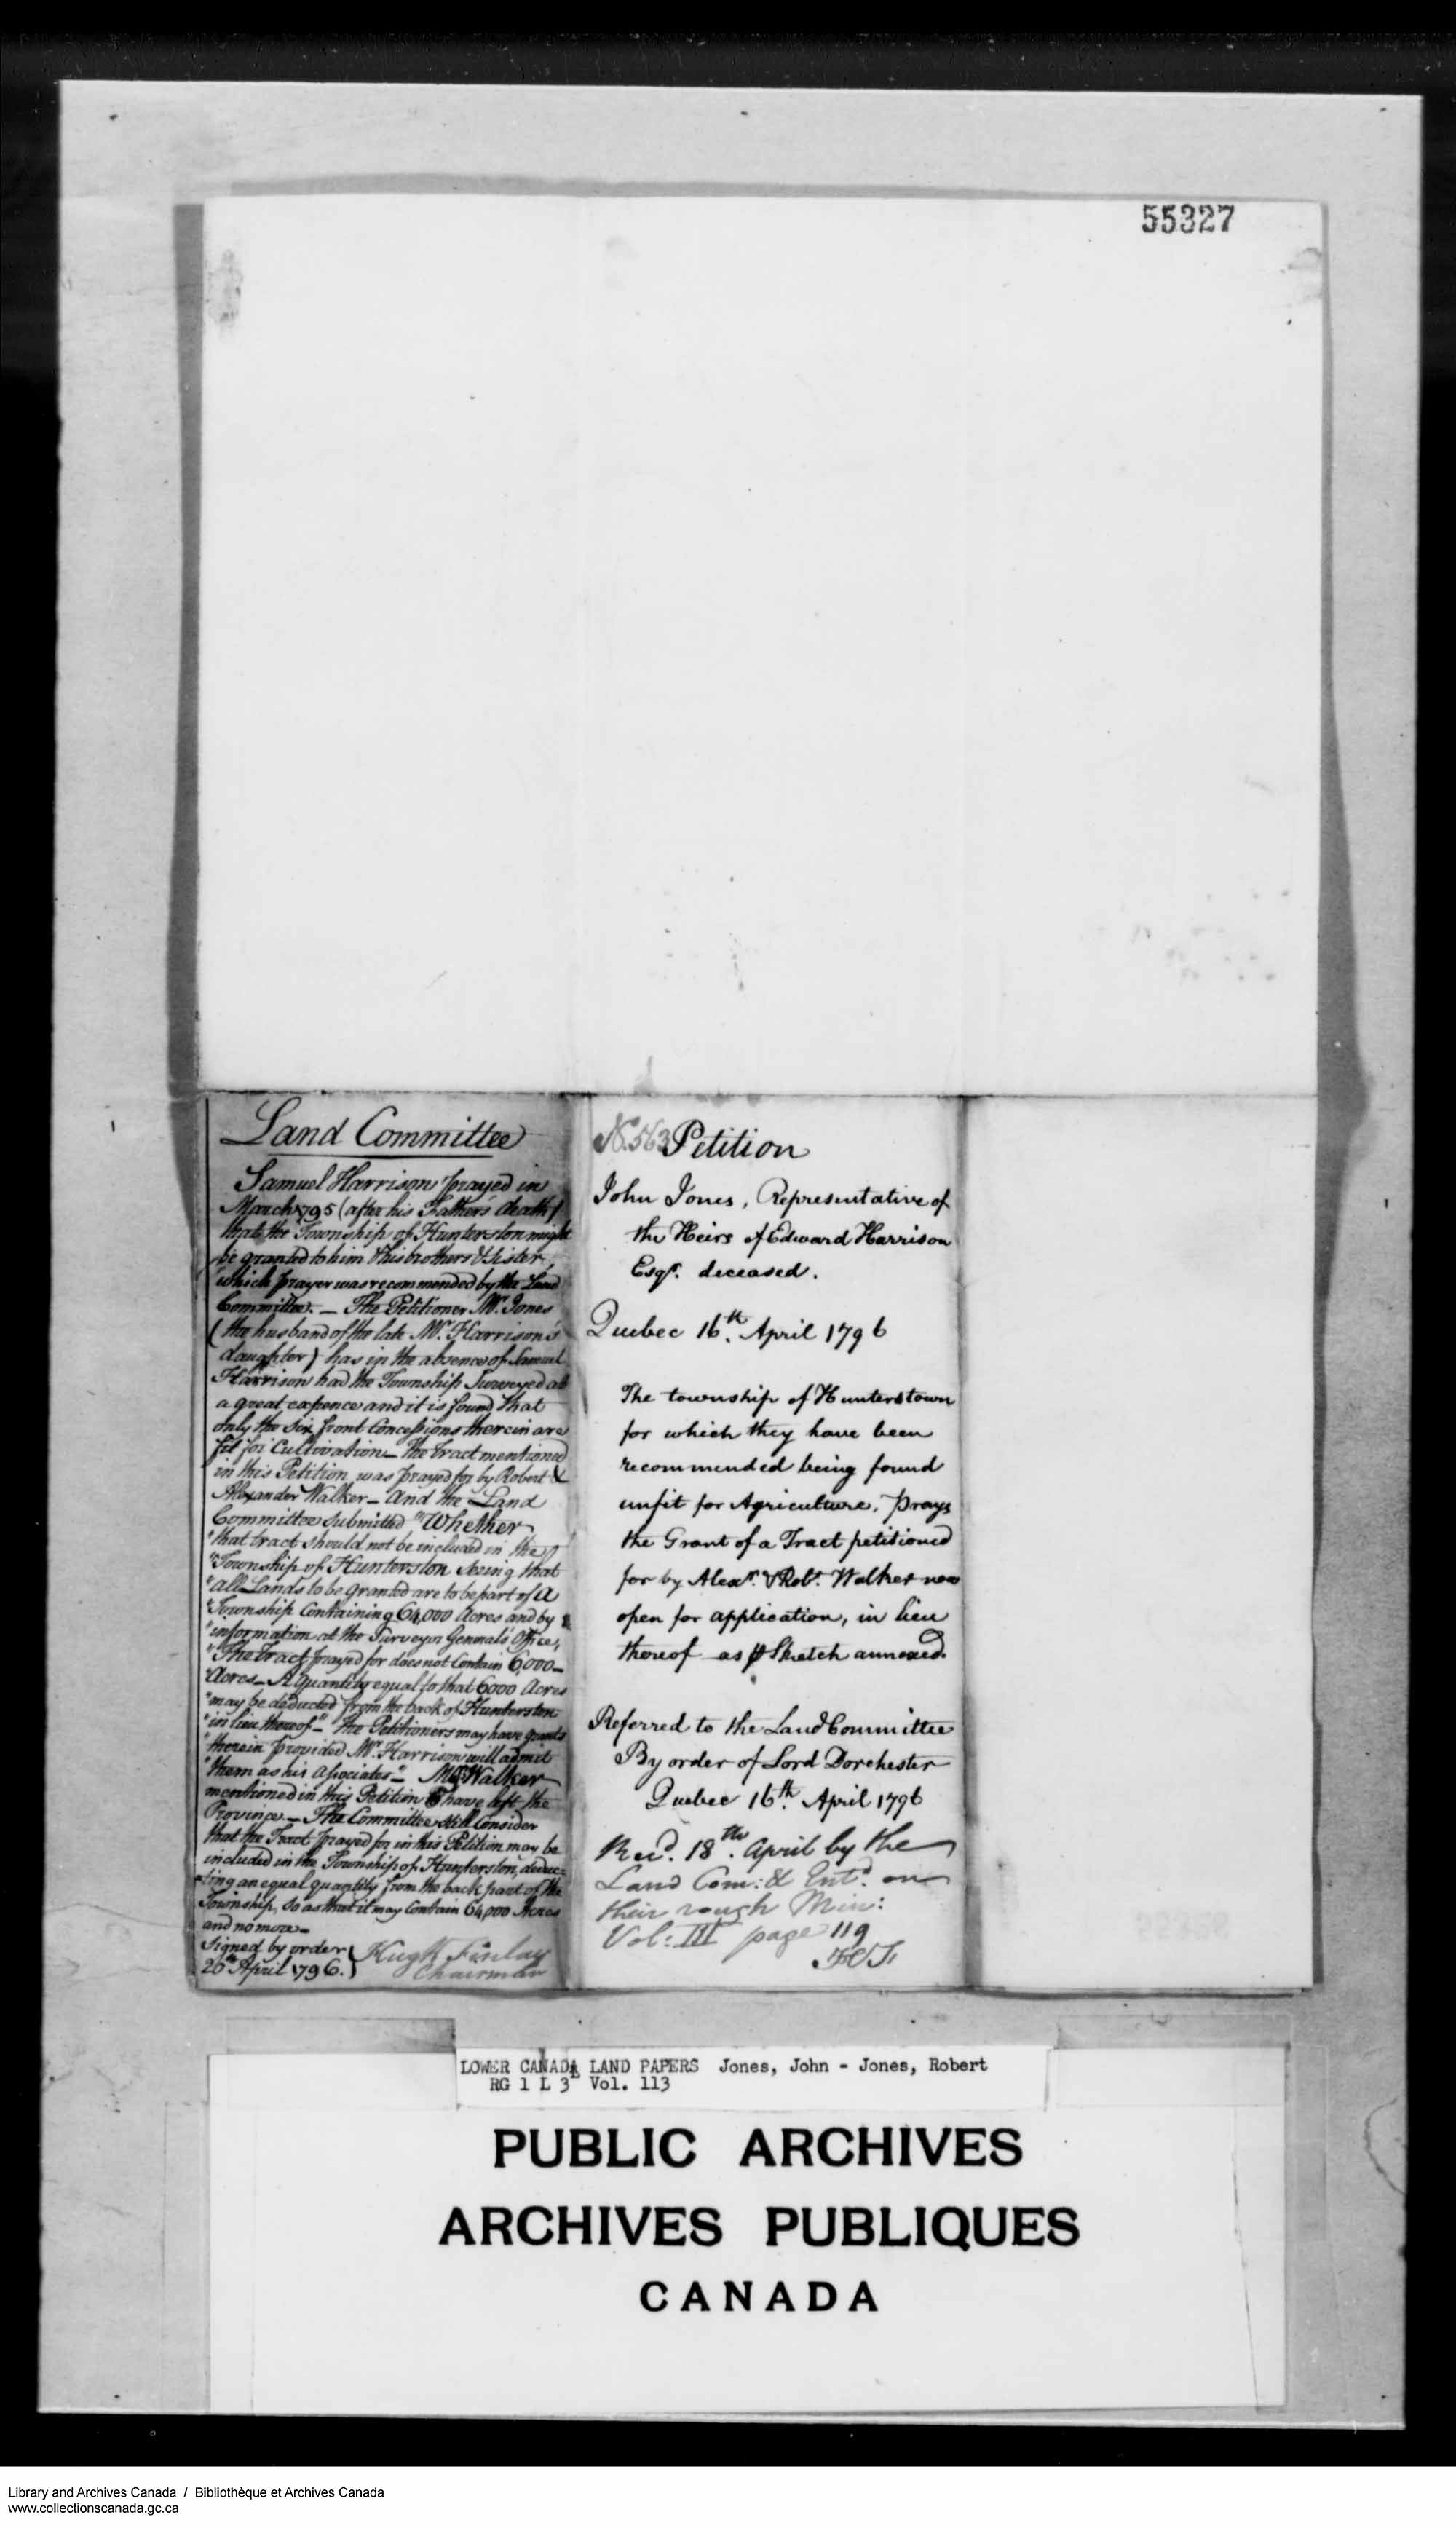 55327
Land Committee
Samuel Harrison prayed in
March 1795 (after his Father's death)
that the Township of Hunterston might
be granted to him & his brothers & sister,
which prayer was recommended by the Land
Committee. — The Petitioner Mr. Jones
(the husband of the late Mr. Harrison's
daughter) has in the absence of Samuel
Harrison had the Township Surveyed at
a great expence and it is found that
only the six front Concessions therein are
fit for Cultivation — The tract mentioned
in this Petition was prayed for by Robert &
Alexander Walker — And the Land
Committee submitted "Whether
"that tract should not be included in the
"Township of Hunterston seeing that
"all Lands to be granted are to be part of a
"Township Containing 64,000 Acres and by
"information at the Surveyor General's Office,
"The tract prayed for does not Contain 6,000
"Acres — A quantity equal to that 6000 Acres
"may be deducted from the back of Hunterston
"in lieu thereof — The Petitioners may have grants
"therein provided Mr. Harrison will admit
"them as his Associates" — Walker
mentioned in this Petition have left the
Province. — The Committee still Consider
that the Tract prayed for in this Petition may be
included in the Township of Hunterston, deduc=
=ting an equal quantity from the back part of the
Township, so as that it may Contain 64,000 Acres
and no more —
Signed by order
20th April 1796. } Hugh Finlay
Chairman
No. 563 Petition
John Jones, Representative of
the Heirs of Edward Harrison
Esqr. deceased.
Quebec 16th. April 1796
The township of Hunterstown
for which they have been
recommended being found
unfit for Agriculture, prays
the Grant of a Tract petitioned
for by Alexr. & Robt. Walker now
open for application, in lieu
thereof as p Sketch annexed.
Referred to the Land Committee
By order of Lord Dorchester
Quebec 16th. April 1796
Recd. 18th. April by the
Land Com: & Entd. on
their rough Min:
Vol: III page 119
LOWER CANADA LAND PAPERS Jones, John - Jones, Robert
RG 1 L 3 Vol. 113
PUBLIC ARCHIVES
ARCHIVES PUBLIQUES
CANADA
Library and Archives Canada / Bibliothèque et Archives Canada
www.collectionscanada.gc.ca